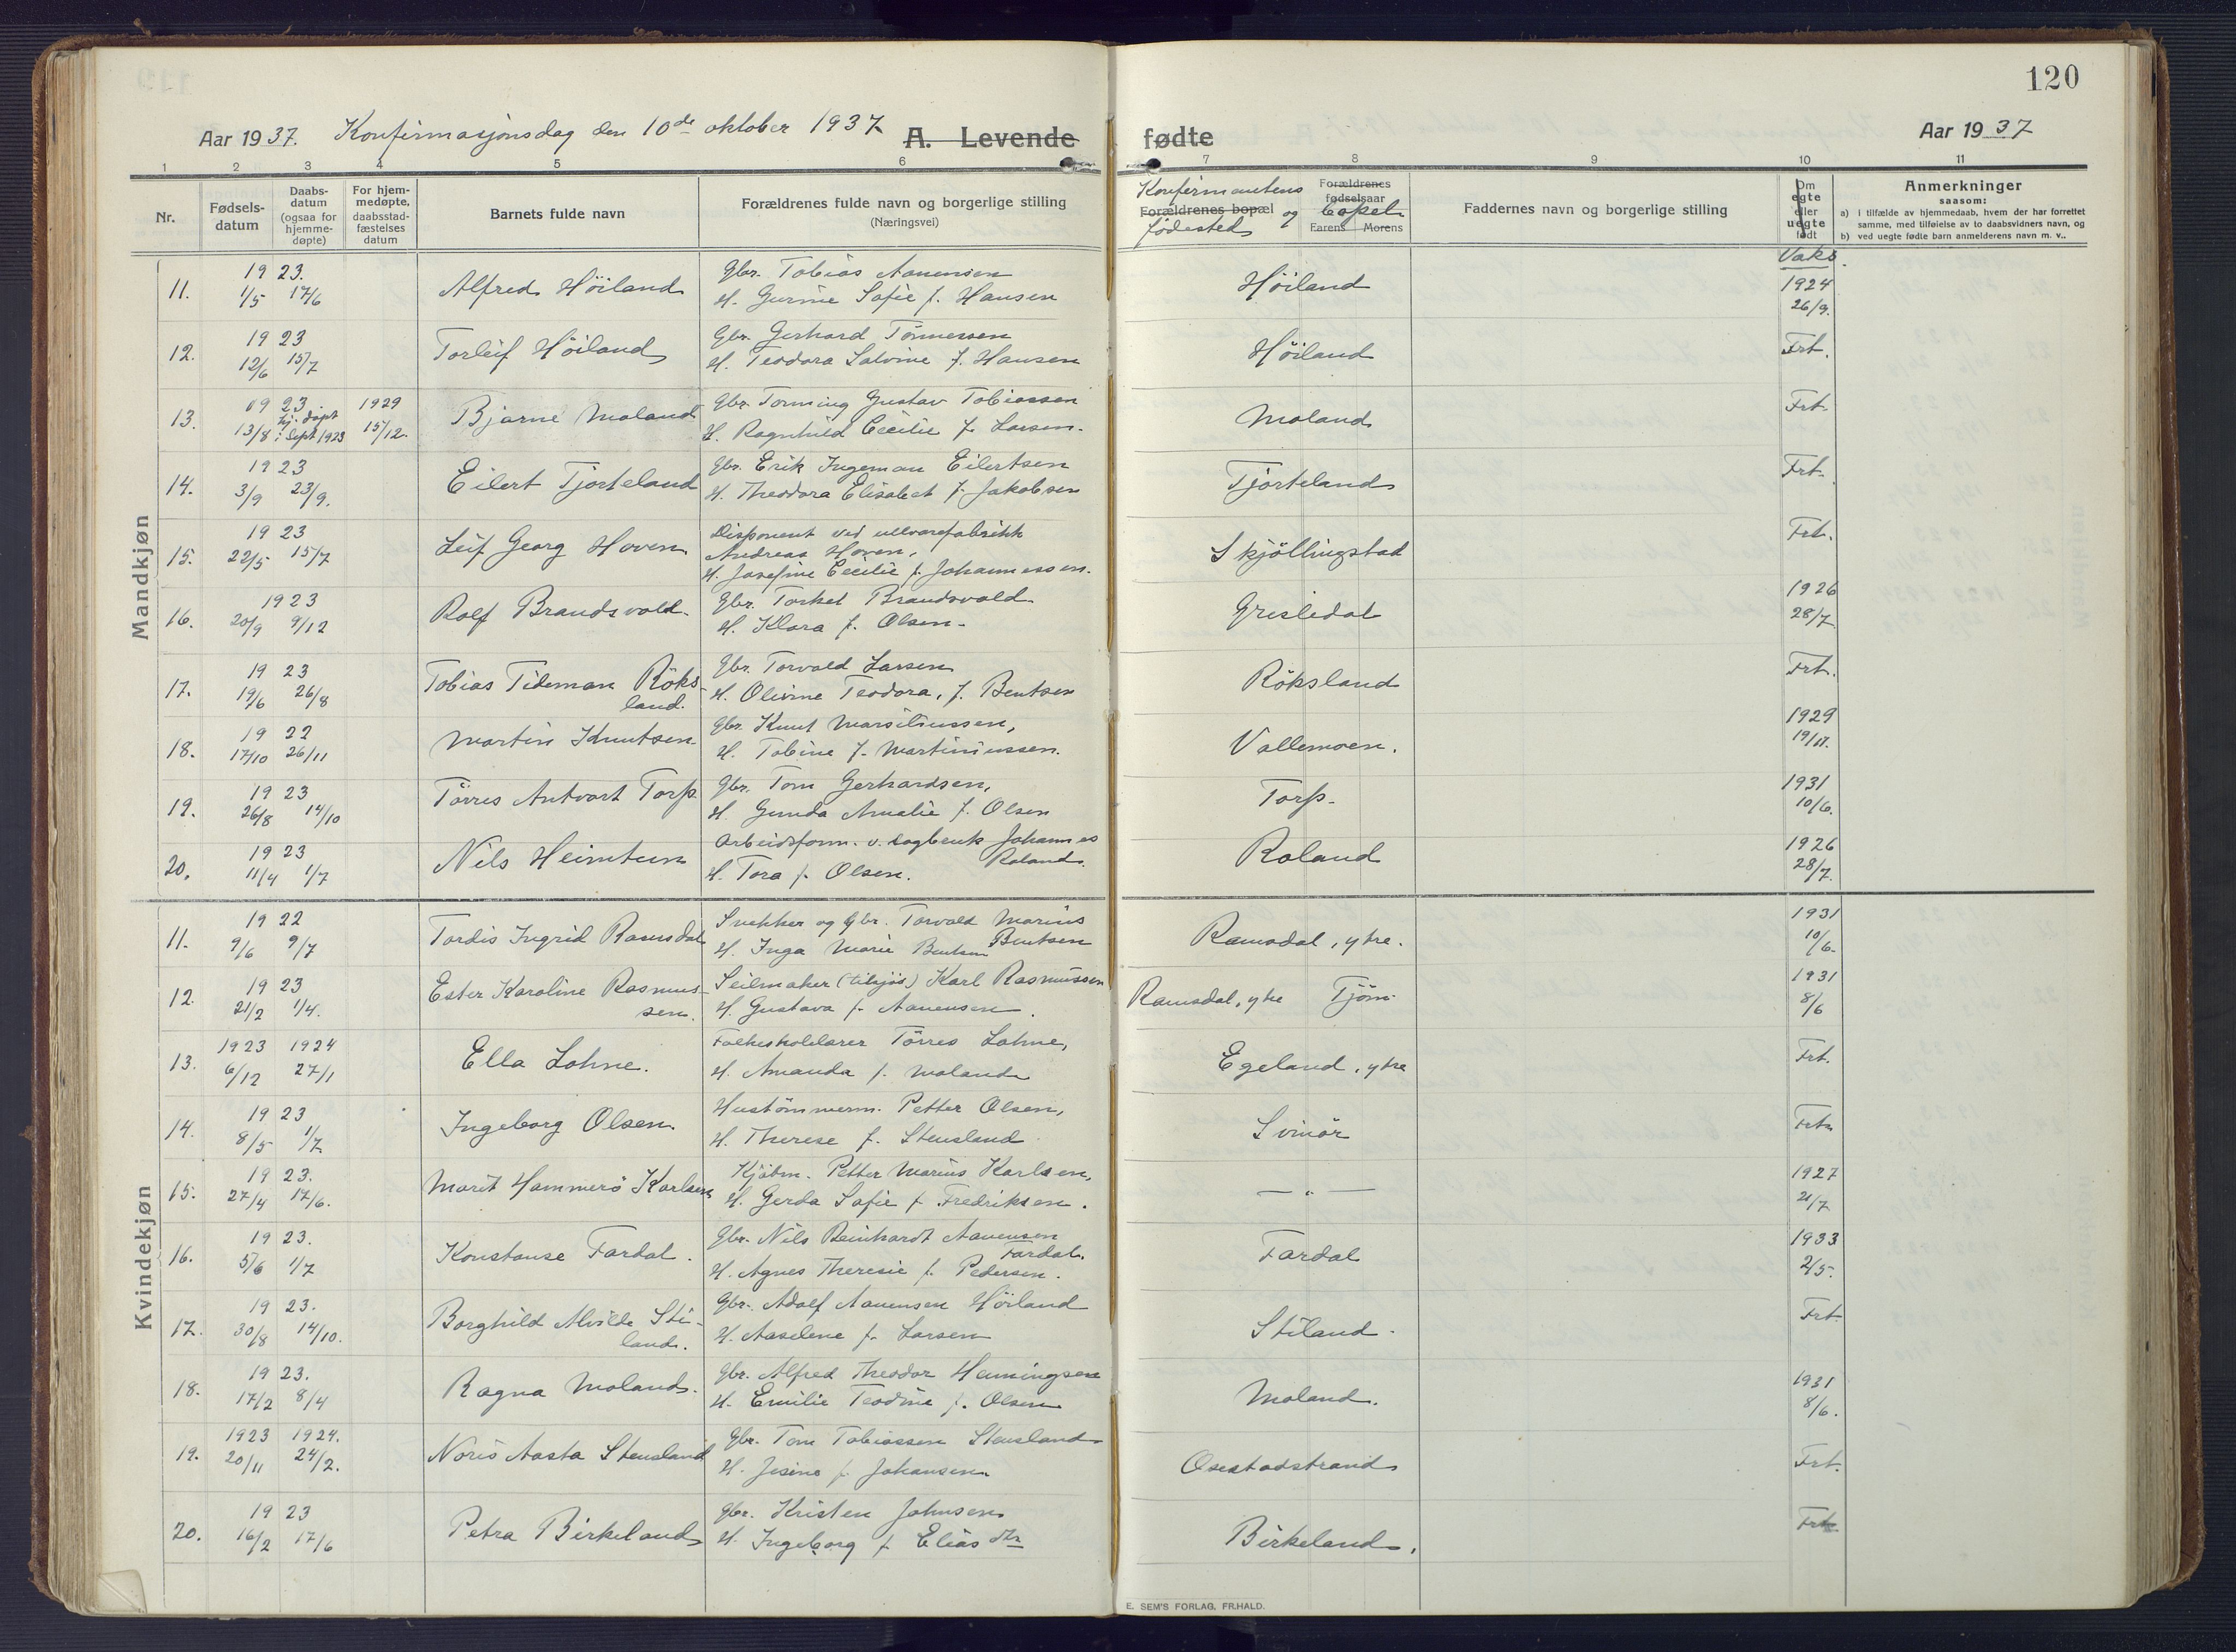 120
Aar 1937. Konfirmasjonsdag den 10de oktober 1937. A. Levende fødte Aar 1937
1 2 3 4 5 6 7 8 9 10 11
Nr.
Fødsels-
datum
Daabs-
datum
(ogsaa for
hjemme-
døpte)
For hjem-
medøpte,
daabsstad-
fæstelses
datum
Barnets fulde navn
Forældrenes fulde navn og borgerlige stilling
(Næringsvei)
Konfirmantens
Forældrenes bopæl og
fødested
Forældrenes
fødselsaar
bopel
Farens Morens
Faddernes navn og borgerlige stilling
Om
egte
eller
uegte
født
Anmerkninger
saasom:
a) i tilfælde av hjemmedaab, hvem der har forrettet
samme, med tilføielse av to daabsvidners navn, og
b) ved uegte fødte barn anmelderens navn m. v..
Mandkjøn
Vaks.
11. 1923. 1/5 17/6 Alfred Höiland
Gbr. Tobias Aanensen
H. Gurine Sofie f. Hansen
Höiland 1924 26/9.
12. 1923 12/6 15/7 Torleif Höiland
Gbr. Gerhard Tönnessen
H. Teodora Salvine f. Hansen
Höiland Frt.
13. 1923 13/8 hj. døpt i Sept 1923 1929 15/12. Bjarne Moland
Gbr. Tonning Gustav Tobiassen
H. Ragnhild Cecilie f. Larsen.
Moland Frt.
14. 1923 3/9 23/9. Eilert Tjorteland
Gbr. Erik Ingeman Eilertsen
H. Theodora Elisabet f. Jakobsen
Tjorteland Frt.
15. 1923 22/5 15/7 Leif Georg Hoven
Disponent ved ullvarefabrikk
Andreas Hoven,
H. Josefine Cecilie f. Johannessen.
Skjöllingstad Frt.
16. 1923 20/9 9/12 Rolf Brandsvold.
Gbr. Torkel Brandsvold
H. Klara f. Olsen.
Grisledal 1926 28/7
17. 1923 19/6 26/8 Tobias Tideman Röks-
land.
Gbr. Torvald Larsen
H. Olivine Teodora, f. Bentsen
Röksland Frt.
18. 1922 17/10 26/11 Martin Knutsen
Gbr. Knut Marsiliussen,
H. Tobine f. Martiniussen.
Vallemoen. 1929 19/11.
19. 1923 26/8 14/10 Törres Antvort Torp
Gbr. Tom Gerhardsen,
H. Gunda Amalie f. Olsen
Torp. 1931 10/6.
20. 1923 11/4 1/7 Nils Heimtun
Arbeidsform. v. sagbruk Johannes
Roland.
H. Tora f. Olsen.
Roland 1926 28/7.
Kvindekjøn
11. 1922 9/6 9/7 Tordis Ingrid Ramsdal
Snekker og Gbr. Torvald Marius
Bentsen
H. Inga Marie Bentsen
Ramsdal, ytre. 1931 10/6.
12. 1923 21/2 1/4. Ester Karoline Rasmus-
sen.
Seilmaker (tilsjös) Karl Rasmussen
H. Gustava f. Aanensen.
Ramsdal, ytre Tjöm. 1931 8/6
13. 1923 6/12 1924 27/1 Ella Lohne.
Folkeskolelærer Törres Lohne,
H. Amanda f. Moland
Egeland, ytre Frt.
14. 1923 8/5 1/7 Ingeborg Olsen
Hustömmerm. Petter Olsen,
H. Therese f. Stensland
Svinör Frt.
15. 1923. 27/4 17/6. Marit Hammerö Karlsen
Kjöbm. Petter Marius Karlsen,
H. Gerda Sofie f. Fredriksen.
— " — 1927 21/7
16. 1923. 5/6 1/7 Konstanse Fardal.
Gbr. Nils Reinhardt Aanensen
Fardal.
H. Agnes Theresie f. Pedersen.
Fardal 1933 2/5.
17. 1923. 30/8 14/10. Borghild Alvilde Sti-
land.
Gbr. Adolf Aanensen Höiland
H. Aaselene f. Larsen
Stiland. Frt.
18. 1923. 17/2 8/4 Ragna Moland.
Gbr. Alfred Theodor Henningsen
H. Emilie Teodine f. Olsen
Moland. 1931 8/6.
19. 1923 20/11 1924. 24/2. Noris Aasta Stensland
Gbr. Tom Tobiassen Stensland
H. Jesine f. Johansen.
Osestadstrand Frt.
20. 1923 16/2 17/6 Petra Birkeland
Gbr. Kristen Johnsen
H. Ingeborg f. Elias dtr
Birkeland. Frt.
E. SEM'S FORLAG, FR.HALD.